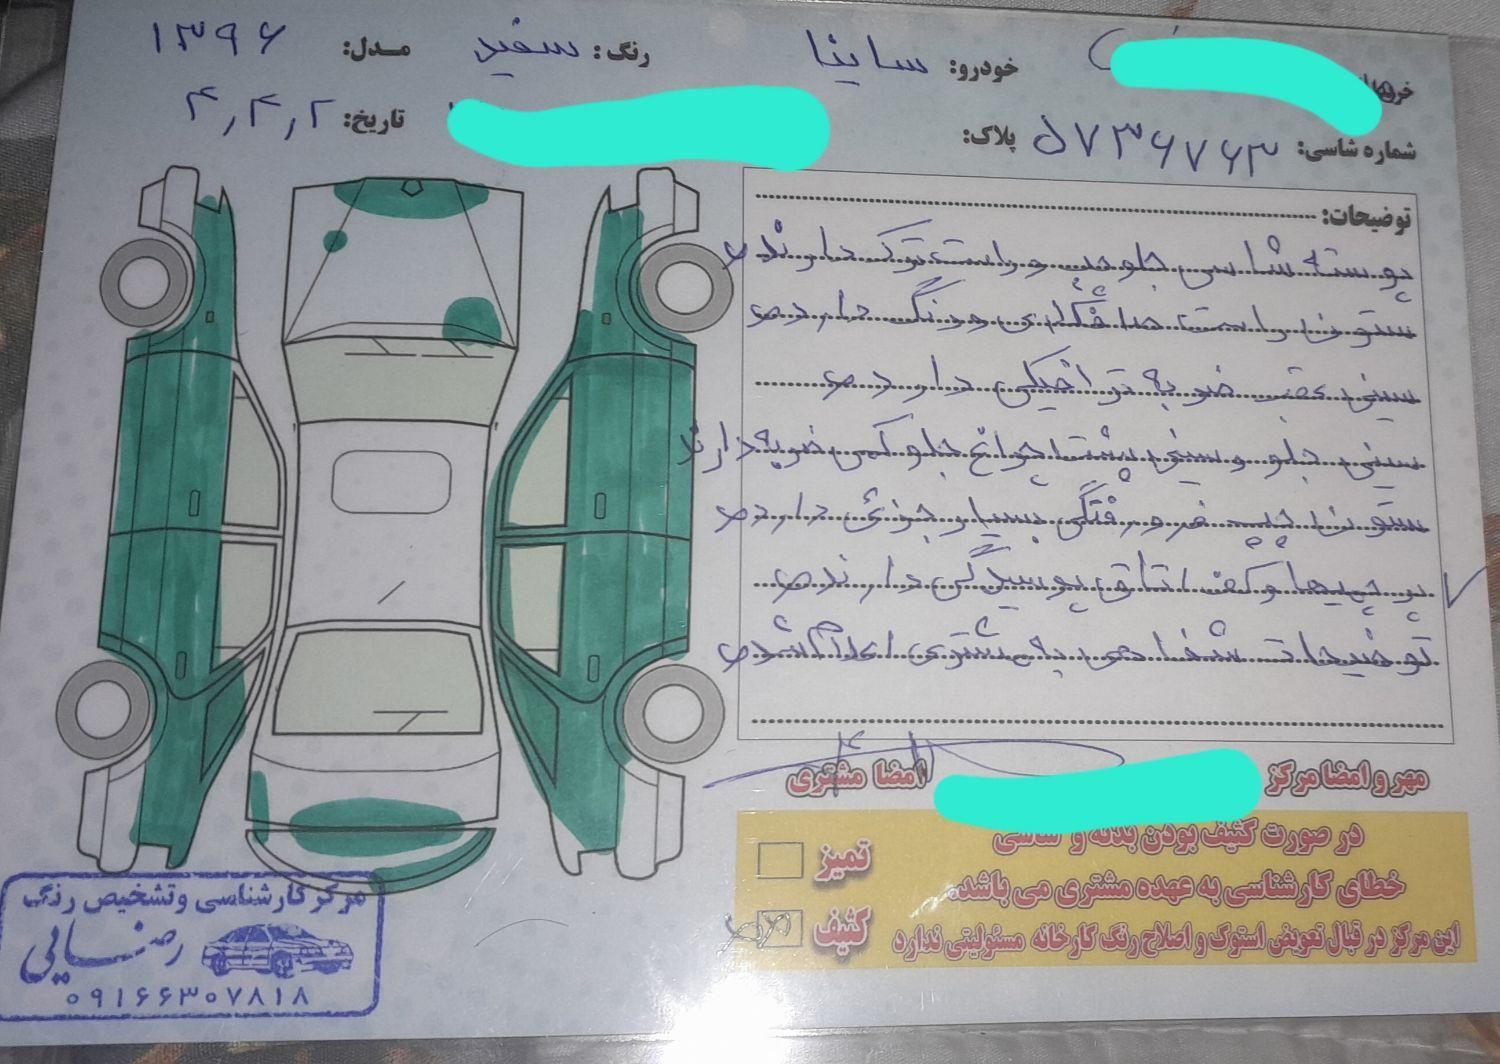 خودرو: ساینا
رنگ: سفید
مدل: ۱۳۹۶
شماره شاسی: ۵۷۳۶۷۶۳
پلاک:
تاریخ: ۴,۴,۲
توضیحات:
پوسته شاسی جلو چپ و راست ترک دارند
ستون راست صافکاری و رنگ دارد
سینی عقب ضربه ترافیکی دارد
سینی جلو و سینی پشت چراغ جلو کمی ضربه دارند
ستون چپ فرورفتگی بسیار جزئی دارد
پرچیها و کف اتاق پوسیدگی دارند
توضیحات شفاهی به مشتری اعلام شد
مهر و امضا مرکز
امضا مشتری
در صورت کثیف بودن بدنه و شاسی
خطای کارشناسی به عهده مشتری می باشد.
این مرکز در قبال تعویض استوک و اصلاح رنگ کارخانه مسئولیتی ندارد
تمیز
کثیف
مرکز کارشناسی وتشخیص رنگ
رضایی
۰۹۱۶۶۳۰۷۸۱۸